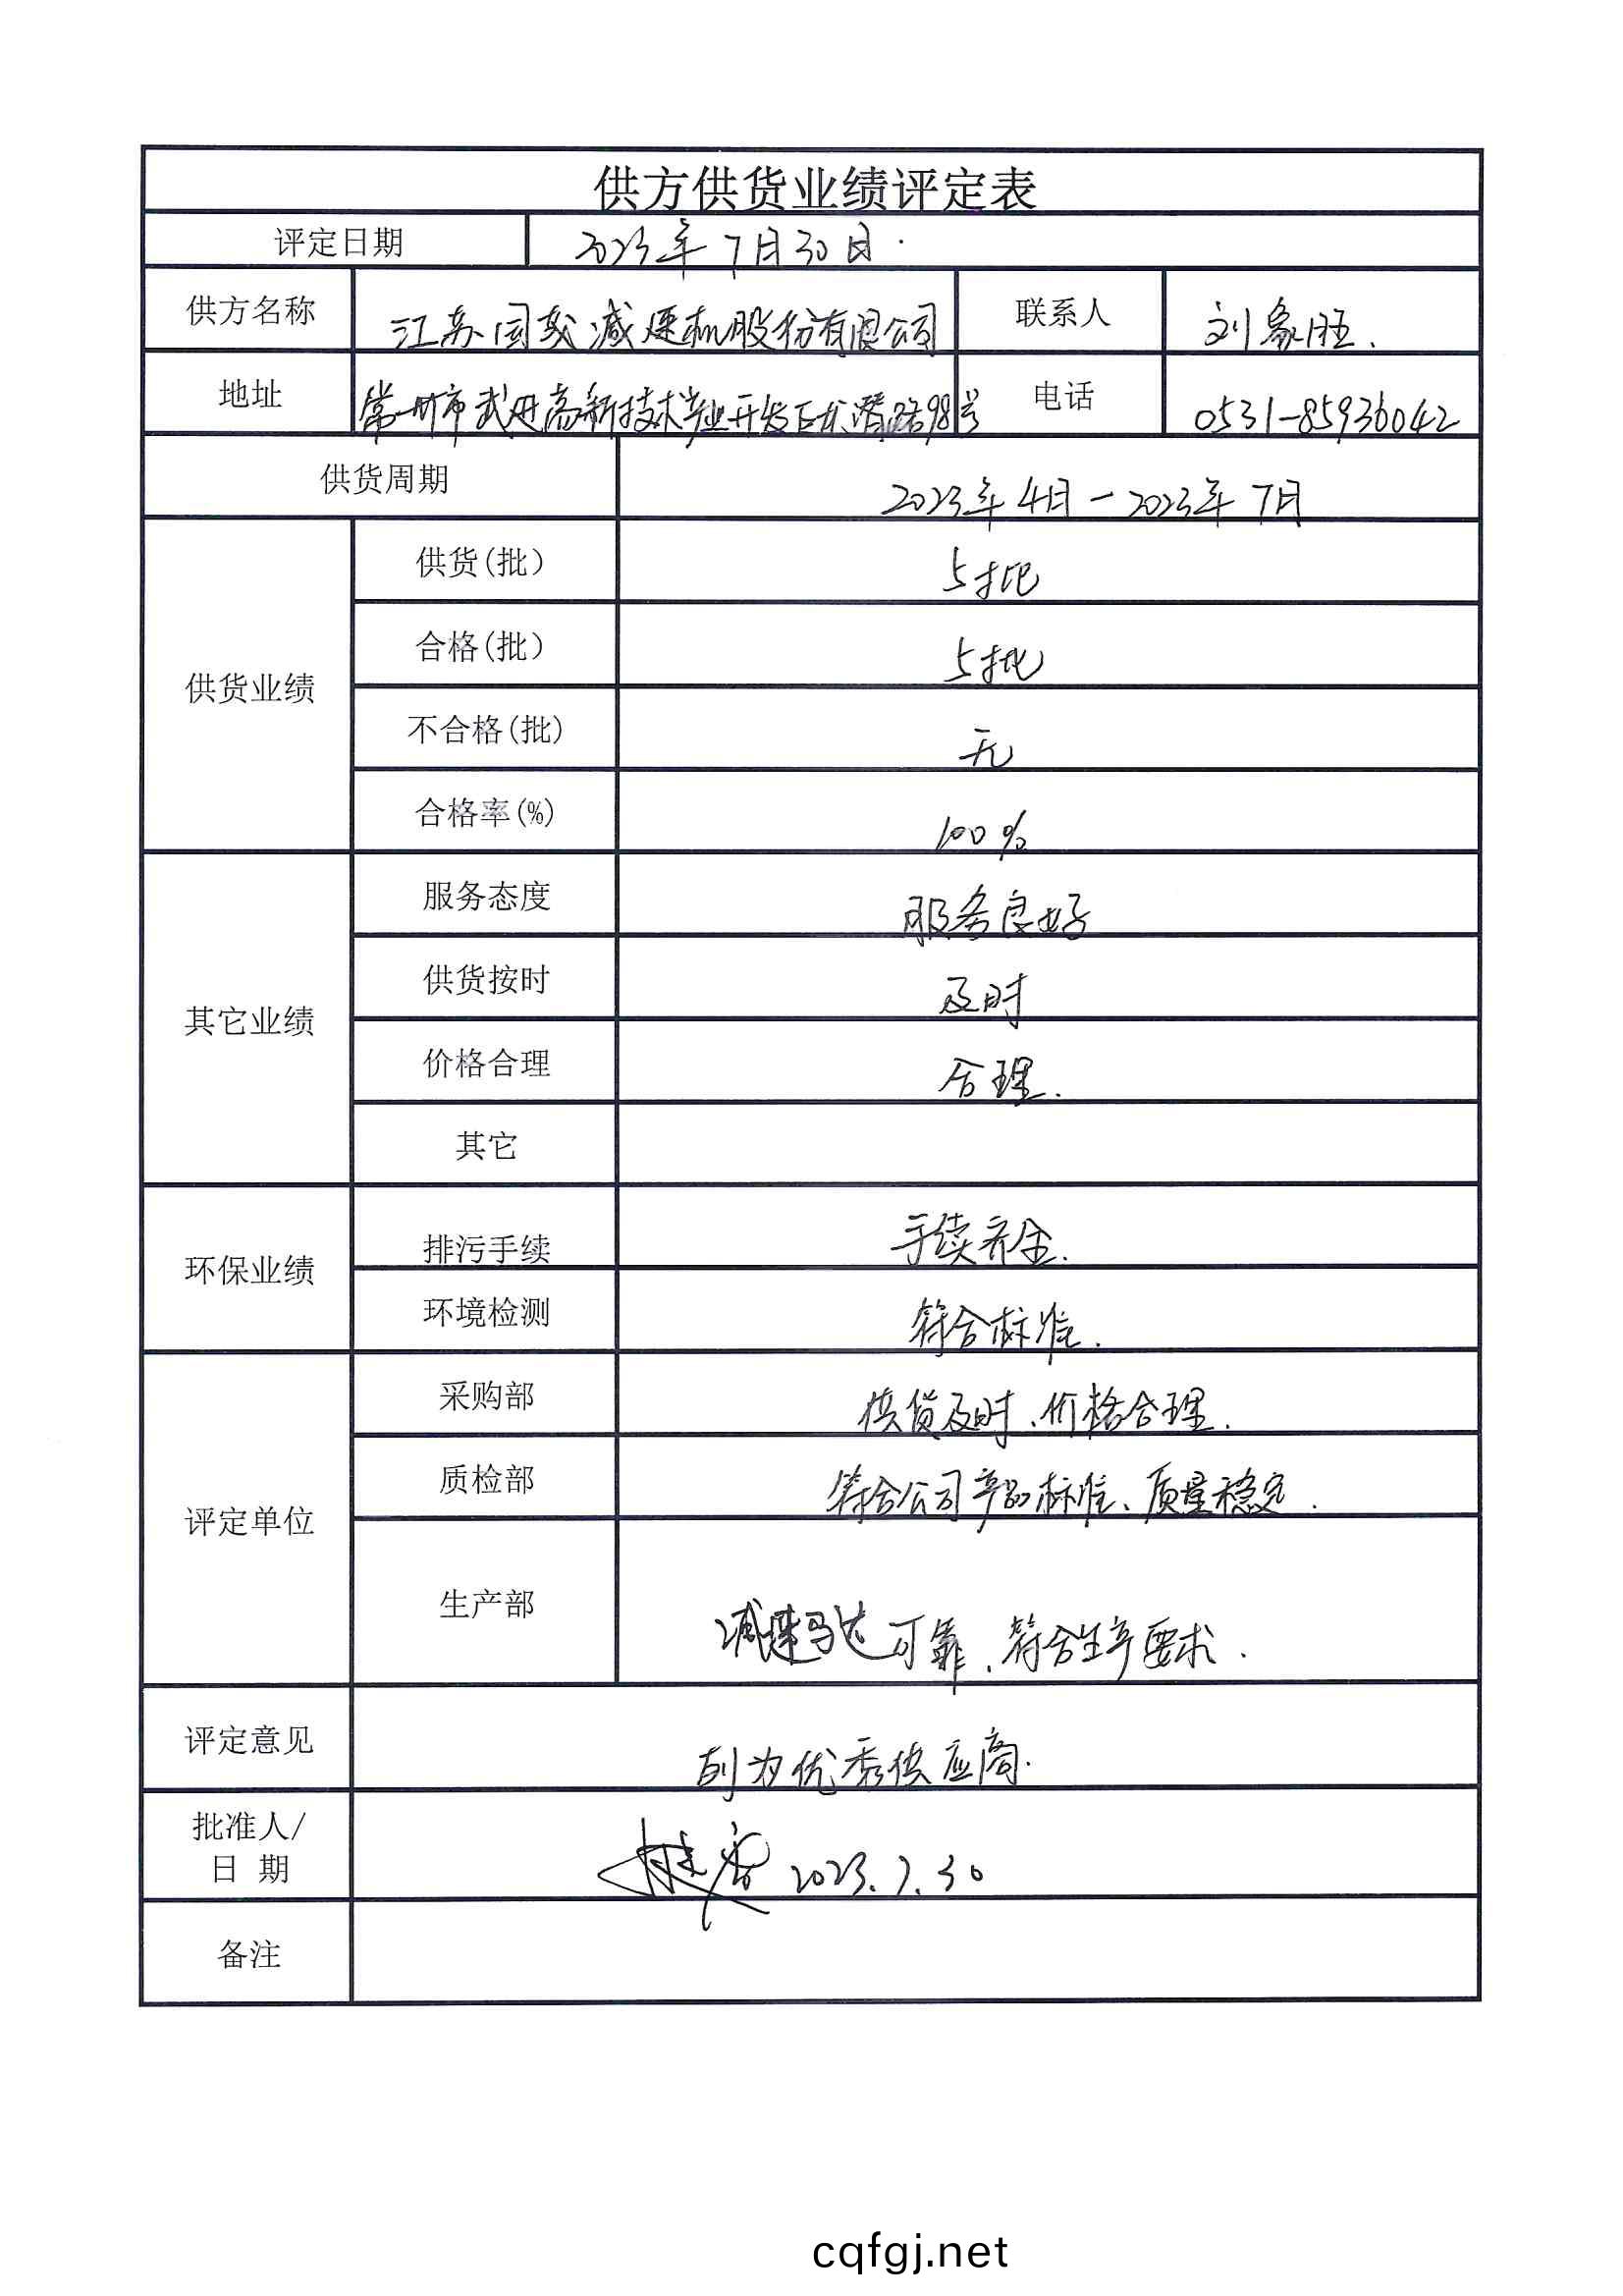 供方供货业绩评定表
评定日期 2023年7月30日.
供方名称 江苏国茂减速机股份有限公司 联系人 刘象胜.
地址 常州市武进高新技术产业开发区龙潜路98号 电话 0531-85936042
供货周期 2023年4月-2023年7月
供货业绩
供货(批) 5批
合格(批) 5批
不合格(批) 无
合格率(%) 100%
其它业绩
服务态度 服务良好
供货按时 及时
价格合理 合理.
其它
环保业绩
排污手续 手续齐全.
环境检测 符合标准.
评定单位
采购部 供货及时、价格合理.
质检部 符合公司产品标准、质量稳定.
生产部 减速马达可靠、符合生产要求.
评定意见 列为优秀供应商.
批准人/
日 期 2023.7.30
备注
cqfgj.net